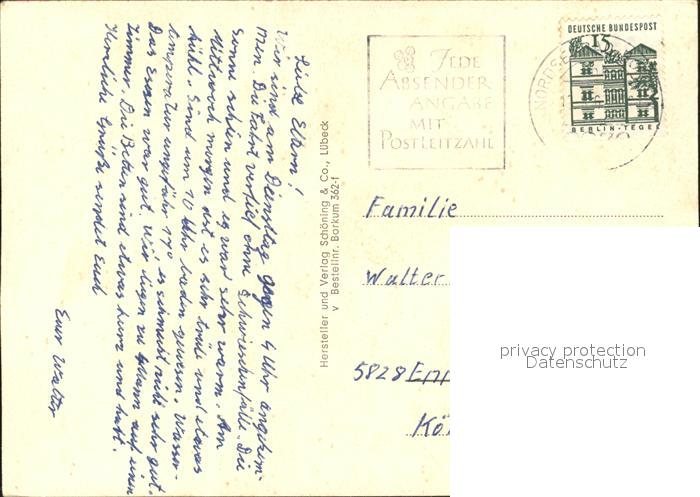 Liebe Eltern!
Wir sind am Dienstag gegen 4 Uhr angekom-
men. Die Fahrt verlief ohne Schwierigkeiten. Die
Sonne schien und es war sehr warm. Am
Mittwoch morgen ist es sehr trübe und etwas
kühl. Sind um 10 Uhr baden gewesen. Wasser-
temperatur ungefähr 17° es schmeckt nicht sehr gut.
Das Essen war gut. Wir liegen zu auf einem
Zimmer. Die Betten sind etwas kurz und hart.
Herzliche Grüße sendet Euch
Euer Walter
Hersteller und Verlag Schöning & Co., Lübeck
v Bestellnr. Borkum 362-f
JEDE
ABSENDER
ANGABE
MIT
POSTLEITZAHL
DEUTSCHE BUNDESPOST
15
BERLIN-TEGEL
Familie
Walter
5828
privacy protection
Datenschutz